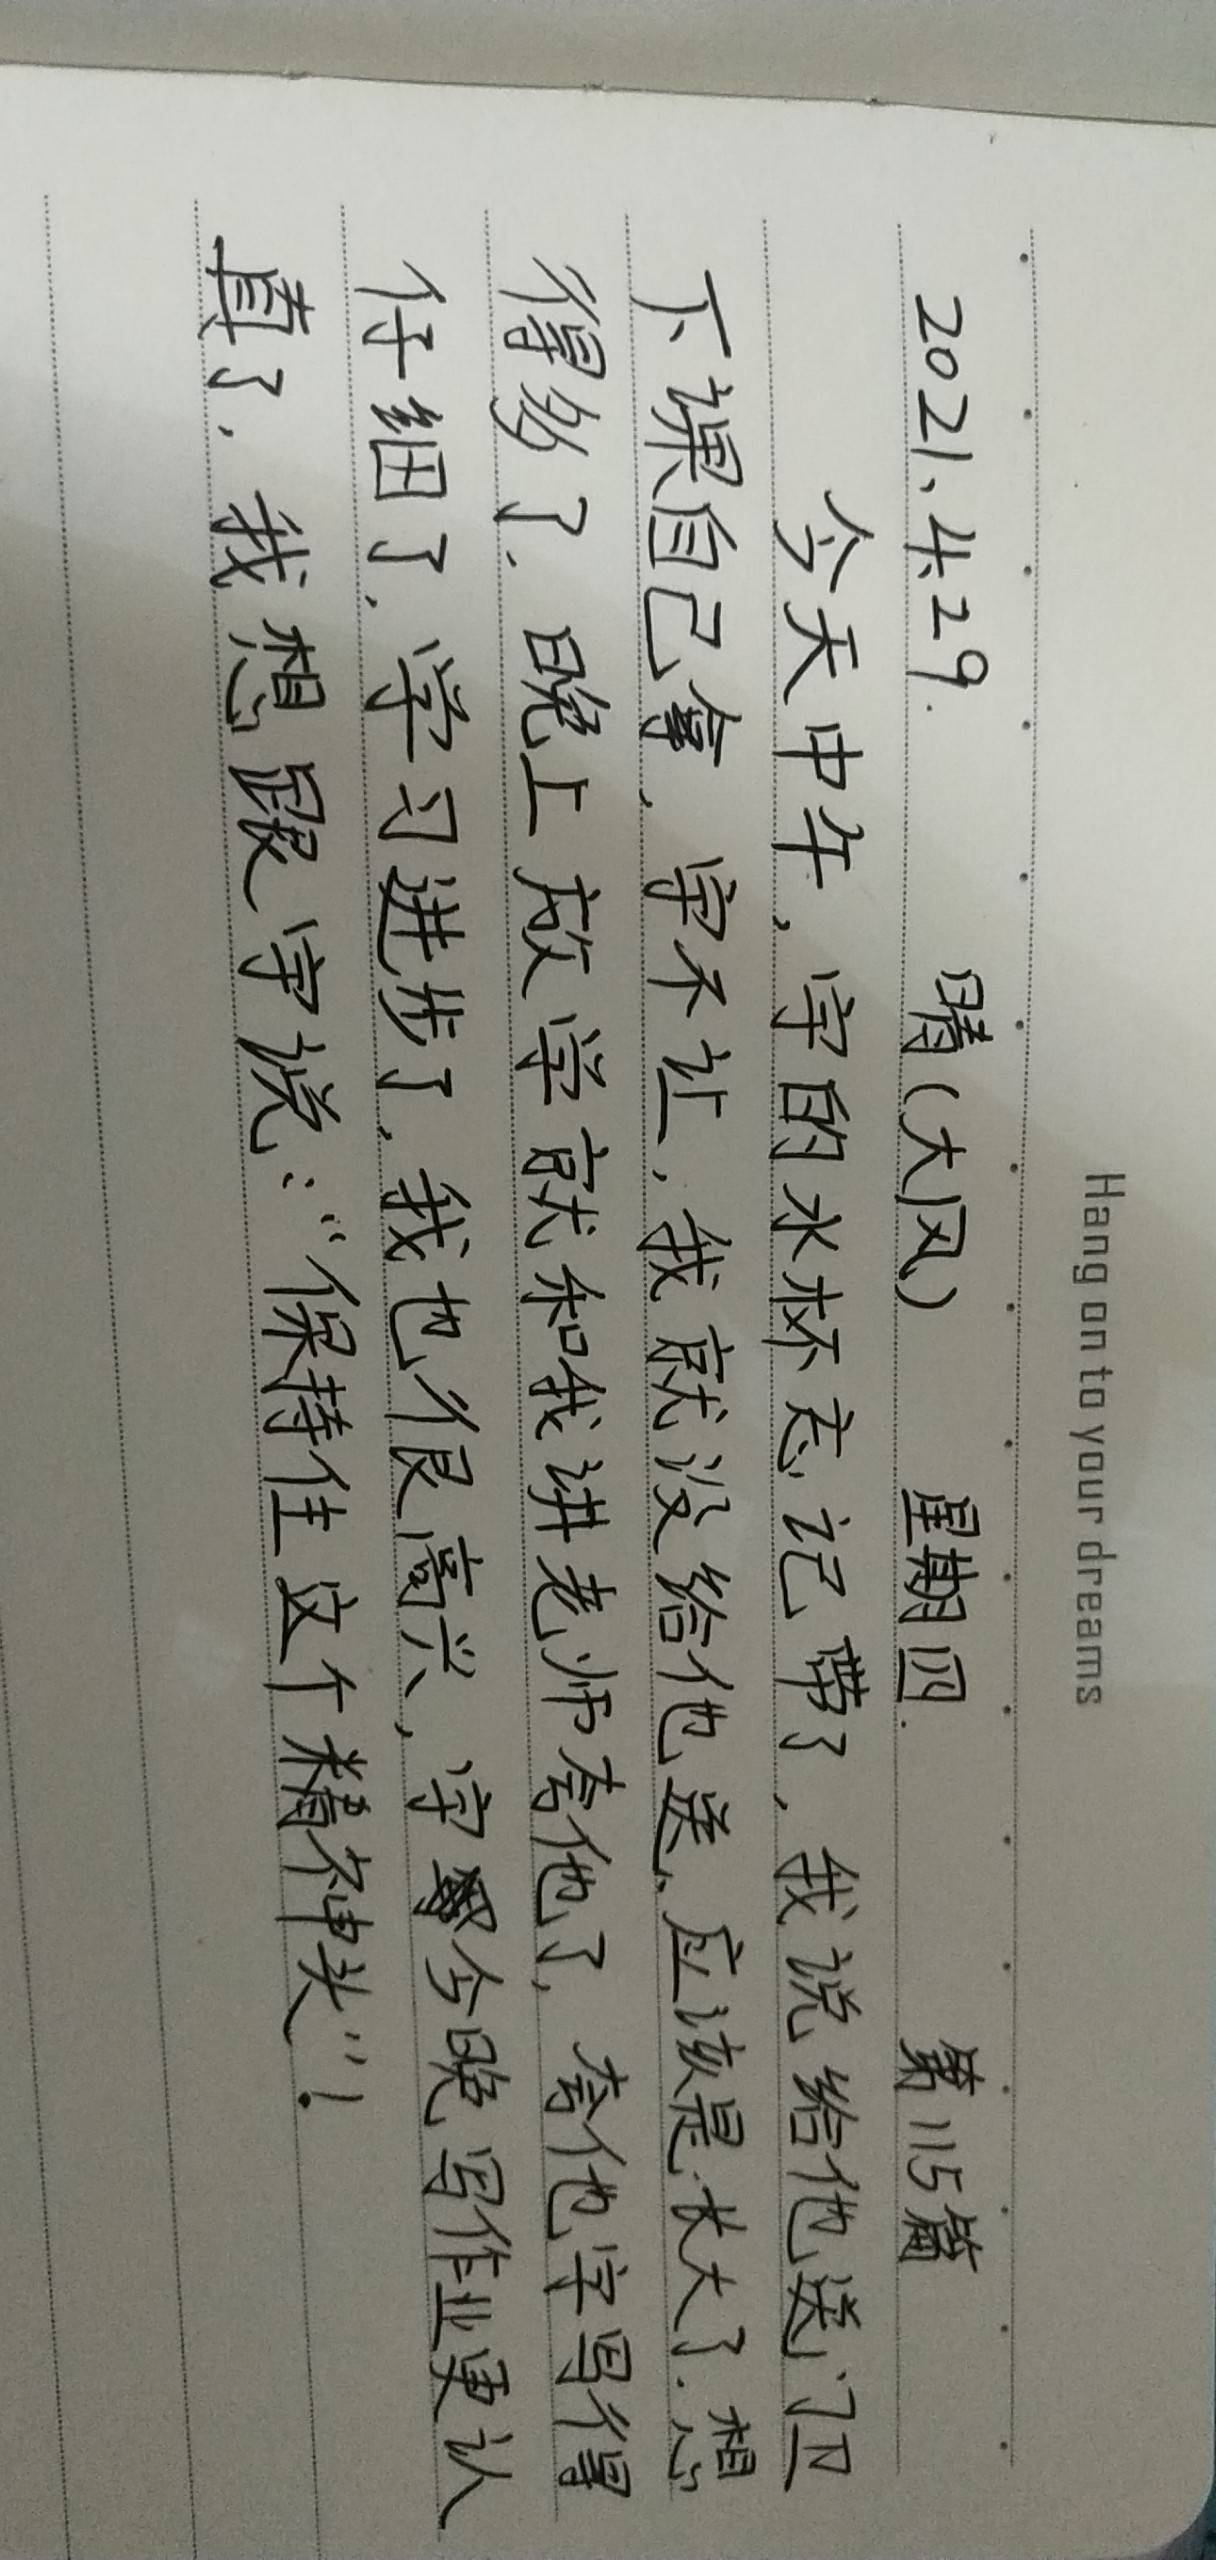 Hang on to your dreams
2021、4.29. 晴(大风) 星期四. 第115篇
今天中午，宇的水杯忘记带了，我说给他送门卫
下课自己拿，宇不让，我就没给他送，应该是长大了.想
得多了.晚上放学就和我讲老师夸他了，夸他字写得
仔细了.学习进步了.我也很高兴，宇今晚写作业更认
真了.我想跟宇说："保持住这个精神头"！